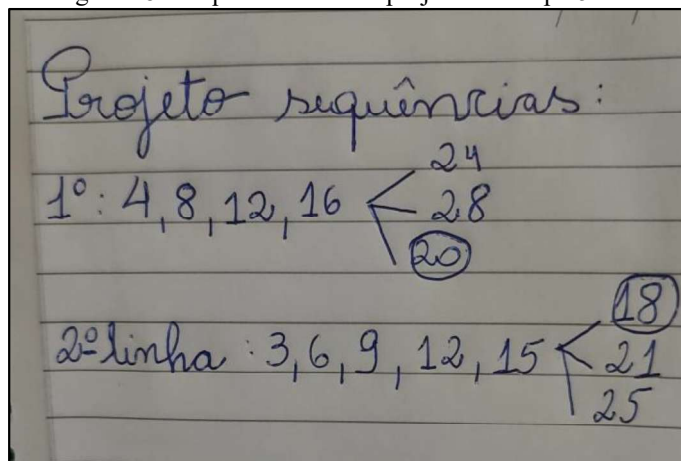 Projeto sequências:
24
1º: 4, 8, 12, 16 28
20
18
2º linha: 3, 6, 9, 12, 15 21
25